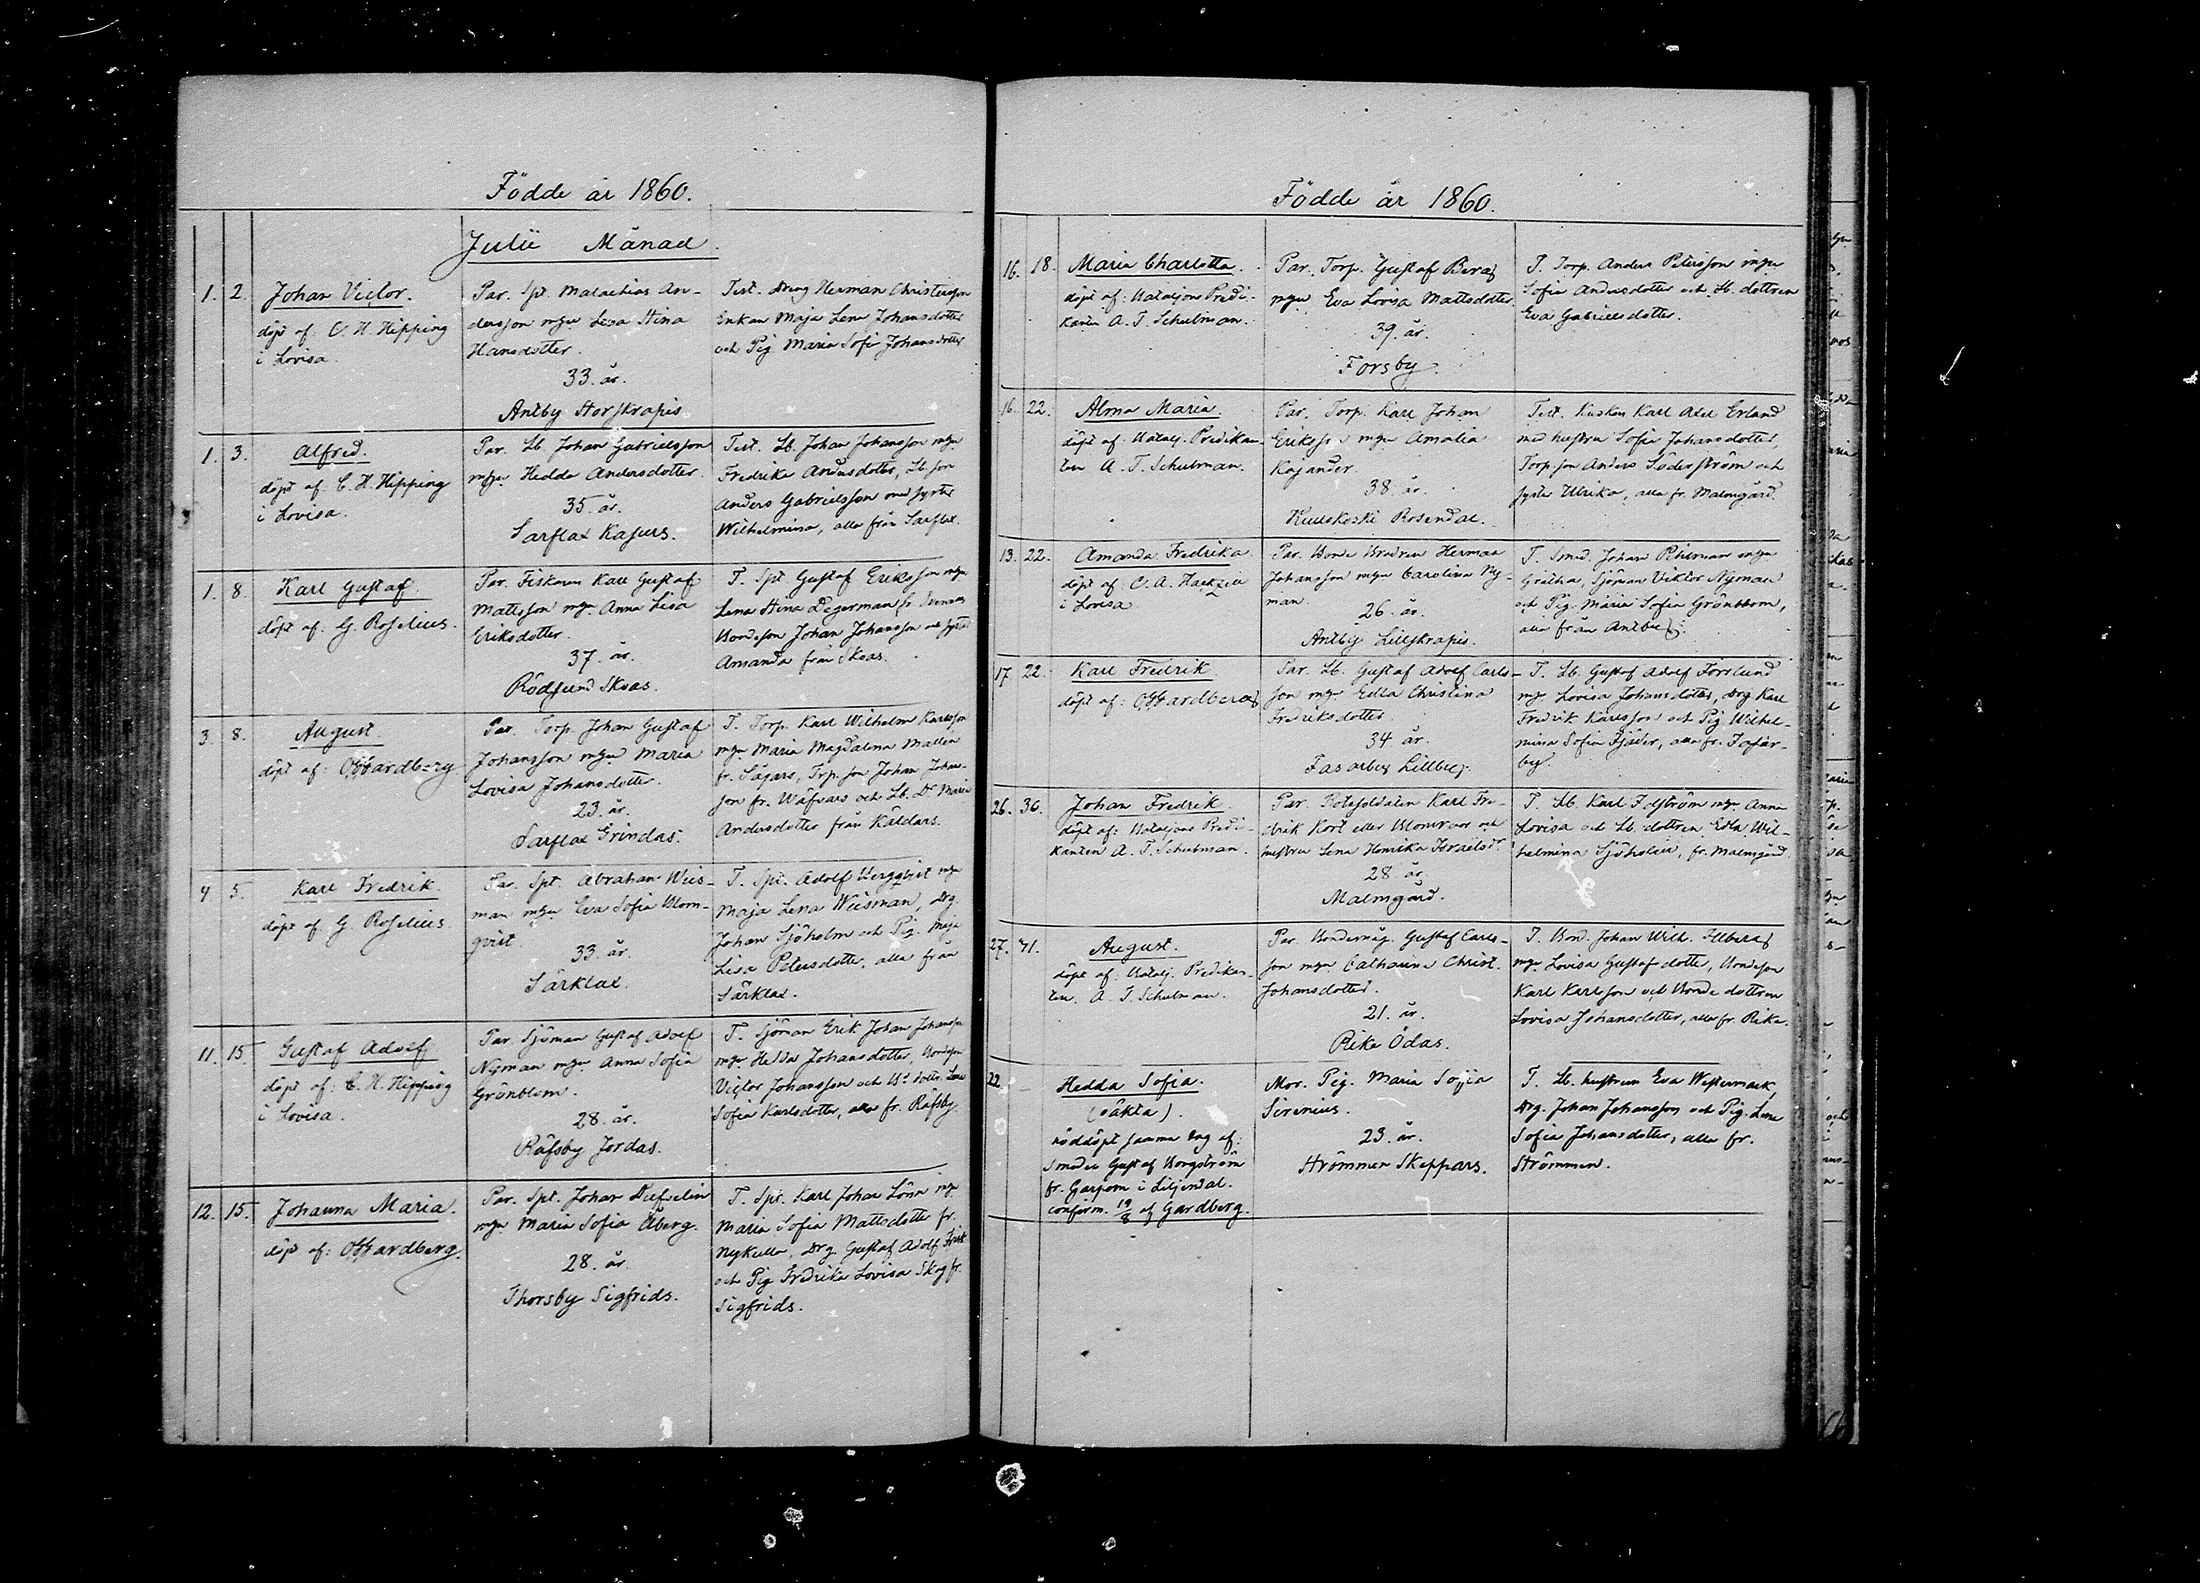 Födde år 1860.
Julii Månad.
1. 2. Johan Victor.
döpt af C. H. Hipping
i Lovisa.
Par. Spt. Malachias An-
dersson m hu Lisa Stina
Hansdotter.
33. år.
Antby Storskrapis
Test. Dreng Herman Christersson
Enkan Maja Lena Johansdotter
och Pig. Maria Sofia Johansdotter
1. 3. Alfred.
döpt af C. H. Hipping
i Lovisa.
Par. Lb. Johan Gabrielsson
Hedda Andersdotter.
35. år.
Sarflax Kasurs.
Test. Lb. Johan Johansson
Fredrika Andersdotter, Lb. son
Anders Gabrielsson med syster
Wilhelmina, alla från Sarflax.
1. 8. Karl Gustaf
döpt af: G. Roselius.
Par. Fiskaren Karl Gustaf
Mattsson Anna Lisa
Eriksdotter.
37. år.
Rödsund Skoas.
T. Spt Gustaf Eriksson
Lena Stina Degerman fr.
Bondeson Johan Johansson och syster
Amanda från Skoas.
3. 8. August.
döpt af: Gardberg
Par. Torp. Johan Gustaf
Johansson Maria
Lovisa Johansdotter.
23. år.
Sarflax Grindas.
T. Torp. Karl Wilhelm Karlsson
Maria Magdalena Mallen
fr. Sågars, Trp. son Johan Johan-
son fr. Wäfvars och Lb. Dr Maria
Andersdotter från Källdars.
4 5. Karl Fredrik.
döpt af G. Roselius.
Par. Spt. Abraham Wiis-
man Eva Sofia Blom-
qvist.
33. år.
Särklax.
T. Spt. Adolf Bergqvist
Maja Lena Wiisman, Drg.
Johan Sjöholm och Pig. Maja
Lisa Petersdotter, alla från
Särklax.
11. 15. Gustaf Adolf
döpt af: C. H. Hipping
i Lovisa.
Par. Sjöman Gustaf Adolf
Nyman Anna Sofia
Grönblom.
28. år.
Räfsby Jordas.
T. Sjöman Erik Johan Johansson
Hedda Johansdotter, Bondeson
Victor Johansson och dottr. Lena
Sofia Karlsdotter, alla fr. Räfsby.
12. 15. Johanna Maria.
döpt af: Gardberg.
Par. Spt. Johan
Maria Sofia Åberg.
28. år.
Thorsby Sigfrids.
T. Spt. Karl Johan Lönn
Maria Sofia Mattsdotter fr.
Nykulla, Drg. Gustaf Adolf
och Pig Fredrika Lovisa Skog fr.
Sigfrids.
Födde år 1860.
16. 18. Maria Charlotta.
döpt af: Bataljons Predi-
kanten A. T. Schulman.
Par. Torp. Gustaf Berg
Eva Lovisa Mattsdotter.
39. år.
Forsby.
T. Torp. Anders Petersson
Sofia Andersdotter och Lb. dottren
Eva Gabrielsdotter.
16. 22. Alma Maria.
döpt af: Batalj. Predikan-
ten A. T. Schulman.
Par. Torp. Karl Johan
Eriksson Amalia
Kajander.
38. år.
Kuuskoski Rosendal.
Test. Kusken Karl Axel Erland
med hustru Sofia Johansdotter,
Torp. son Anders Söderström och
syster Ulrika, alla fr. Malmgård.
13. 22. Amanda Fredrika
döpt af: C. A.
i Lovisa
Par. Bonde Brodren Herman
Johansson Carolina Ny-
man.
26. år.
Antby Lillskrapis.
T. Smed. Johan
Gretha, Sjöman Viktor Nyman
och Pig. Maria Sofia Grönblom,
alla från Antby.
17 22. Karl Fredrik
döpt af: Gardberg
Par. Lb. Gustaf Adolf Carls-
son Edla Christina
Fredriksdotter.
34 år.
Fasarby Lillby.
T. Lb. Gustaf Adolf Forslund
Lovisa Johansdotter, Drg Karl
Fredrik Karlsson och Pig. Wilhel-
mina Sofia Fjäder, alla fr. Fasar-
by.
26. 30. Johan Fredrik
döpt af: Bataljons Predi-
kanten A. T. Schulman.
Par. Rotesoldaten Karl Fre-
drik Kort eller och
hustru Lena Henrika
28 år.
Malmgård.
T. Lb. Karl Anna
Lovisa och Lb. dottren Edla Wil-
helmina Sjöholm, fr. Malmgård.
27. 41. August.
döpt af: Batalj. Predikan-
ten A. T. Schulman.
Par. Bondemåg. Gustaf Carls-
son Catharina Christ.
Johansdotter.
21. år.
Rike Ödas.
T. Bond. Johan Wilh.
Lovisa Gustafsdotter, Bondeson
Karl Karlsson och Bonde dottren
Lovisa Johansdotter, alla fr. Rike.
22. Hedda Sofia.
(oäkta).
nöddöpt samma dag af:
Smeden Gustaf Borgström
fr. Garpom i Liljendal.
confirm. 19/8 af Gardberg.
Mor. Pig. Maria Sofia
Sirenius.
23. år.
Strömmen Skeppars.
T. Lb. hustrun Eva Westermark,
Drg. Johan Johansson och Pig. Lena
Sofia Johansdotter, alla fr.
Strömmen.